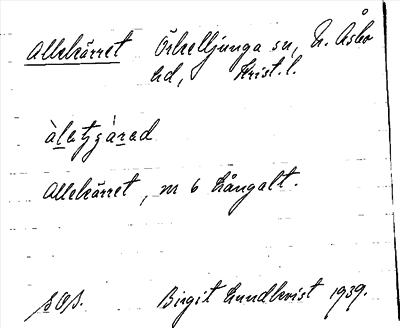 Allekärret Örkelljunga sn, N. Åsbo
hd, Krist. l.
àlatʒzàrad
Allekärret, m 6 Långalt.
Birgit Lundkvist 1939.